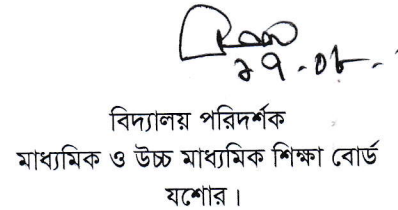 ২৭.০৮.
বিদ্যালয় পরিদর্শক
মাধ্যমিক ও উচ্চ মাধ্যমিক শিক্ষা বোর্ড
যশোর।